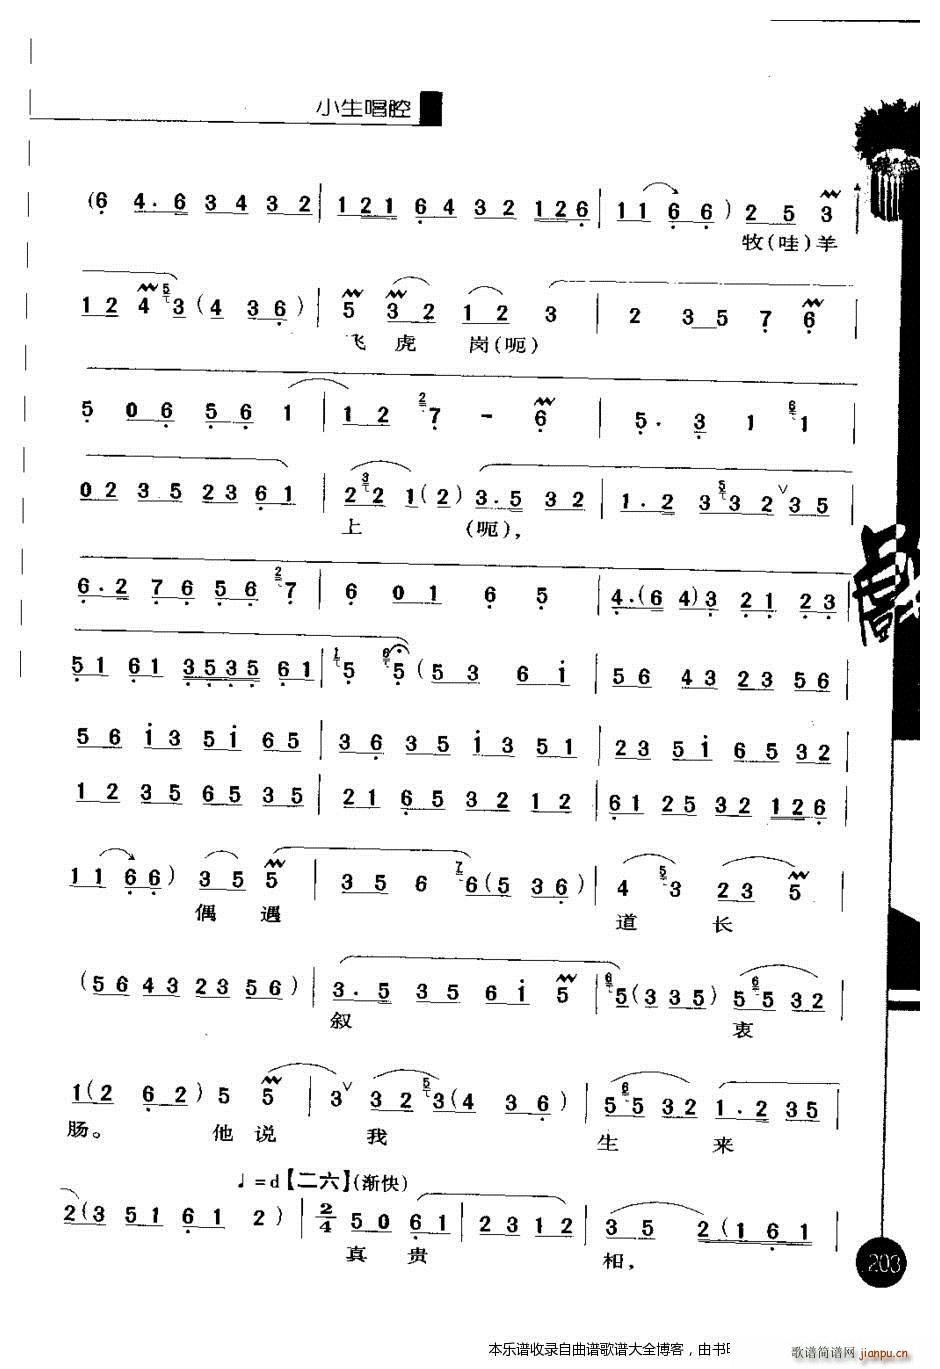 小生唱腔
(6 4.6 3432 | 121 6432 126 | 11 66) 2 5 3
牧(哇)羊
12 4 53(4 36) | 5 32 12 3 | 2 35 7 6
飞虎 岗(呃)
5 06 56 1 | 12 27 - 6 | 5. 3 1 61
02 35 23 61 | 232 1(2) 3.5 32 | 1.2 53 32 ∨35
上 (呃),
6.2 76 56 27 | 6 01 6 5 | 4.(6 4)3 21 23
51 61 3535 61 | 15 65 (53 6i | 56 43 23 56
56 i3 5i 65 | 36 35 i3 51 | 23 5i 65 32
12 35 65 35 | 21 65 32 12 | 61 25 32 126
11 66) 35 5 | 35 6 76(5 36) | 4 53 23 5
偶 遇 道 长
(56 43 23 56) | 3.5 35 6i 5 | 65(3 35) 565 32
叙 衷
1(2 62) 5 5 | 3∨ 32 53(4 36) | 565 32 1.2 35
肠。 他 说 我 生 来
♩=d【二六】(渐快)
2(3 51 61 2) | 2/4 50 61 | 23 12 | 35 2(1 61
真 贵 相,
203
本乐谱收录自曲谱歌谱大全博客，由书
歌谱简谱网
jianpu.cn